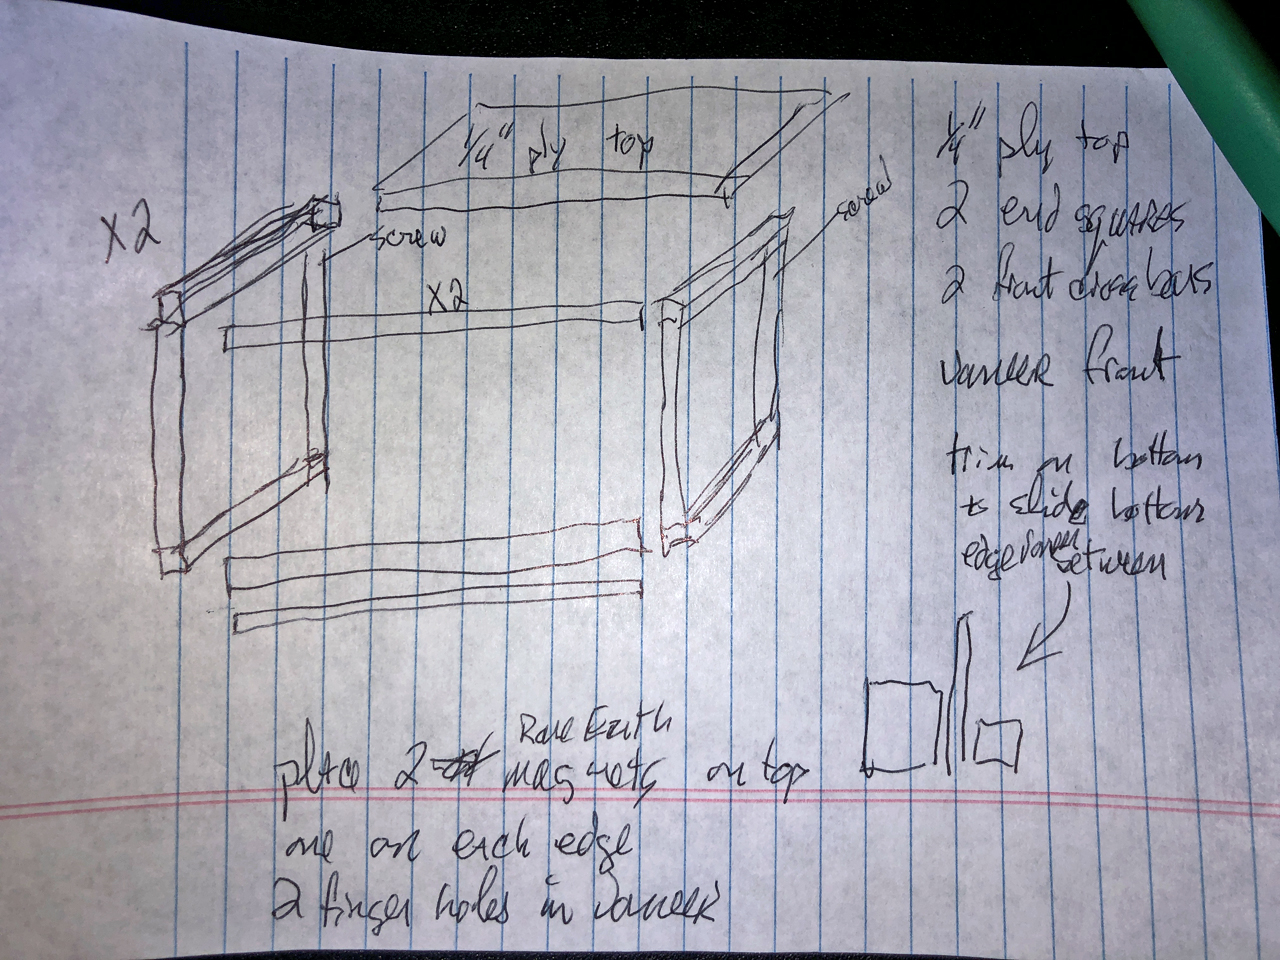 1/4" ply top
X2
screw
screw
X2
1/4" ply top
2 end squares
2 front crossbars
Vaneer front
trim on bottom
to slide bottom
edge vaneer between
Rare Earth
place 2 magnets on top
one on each edge
2 finger holes in Vaneer